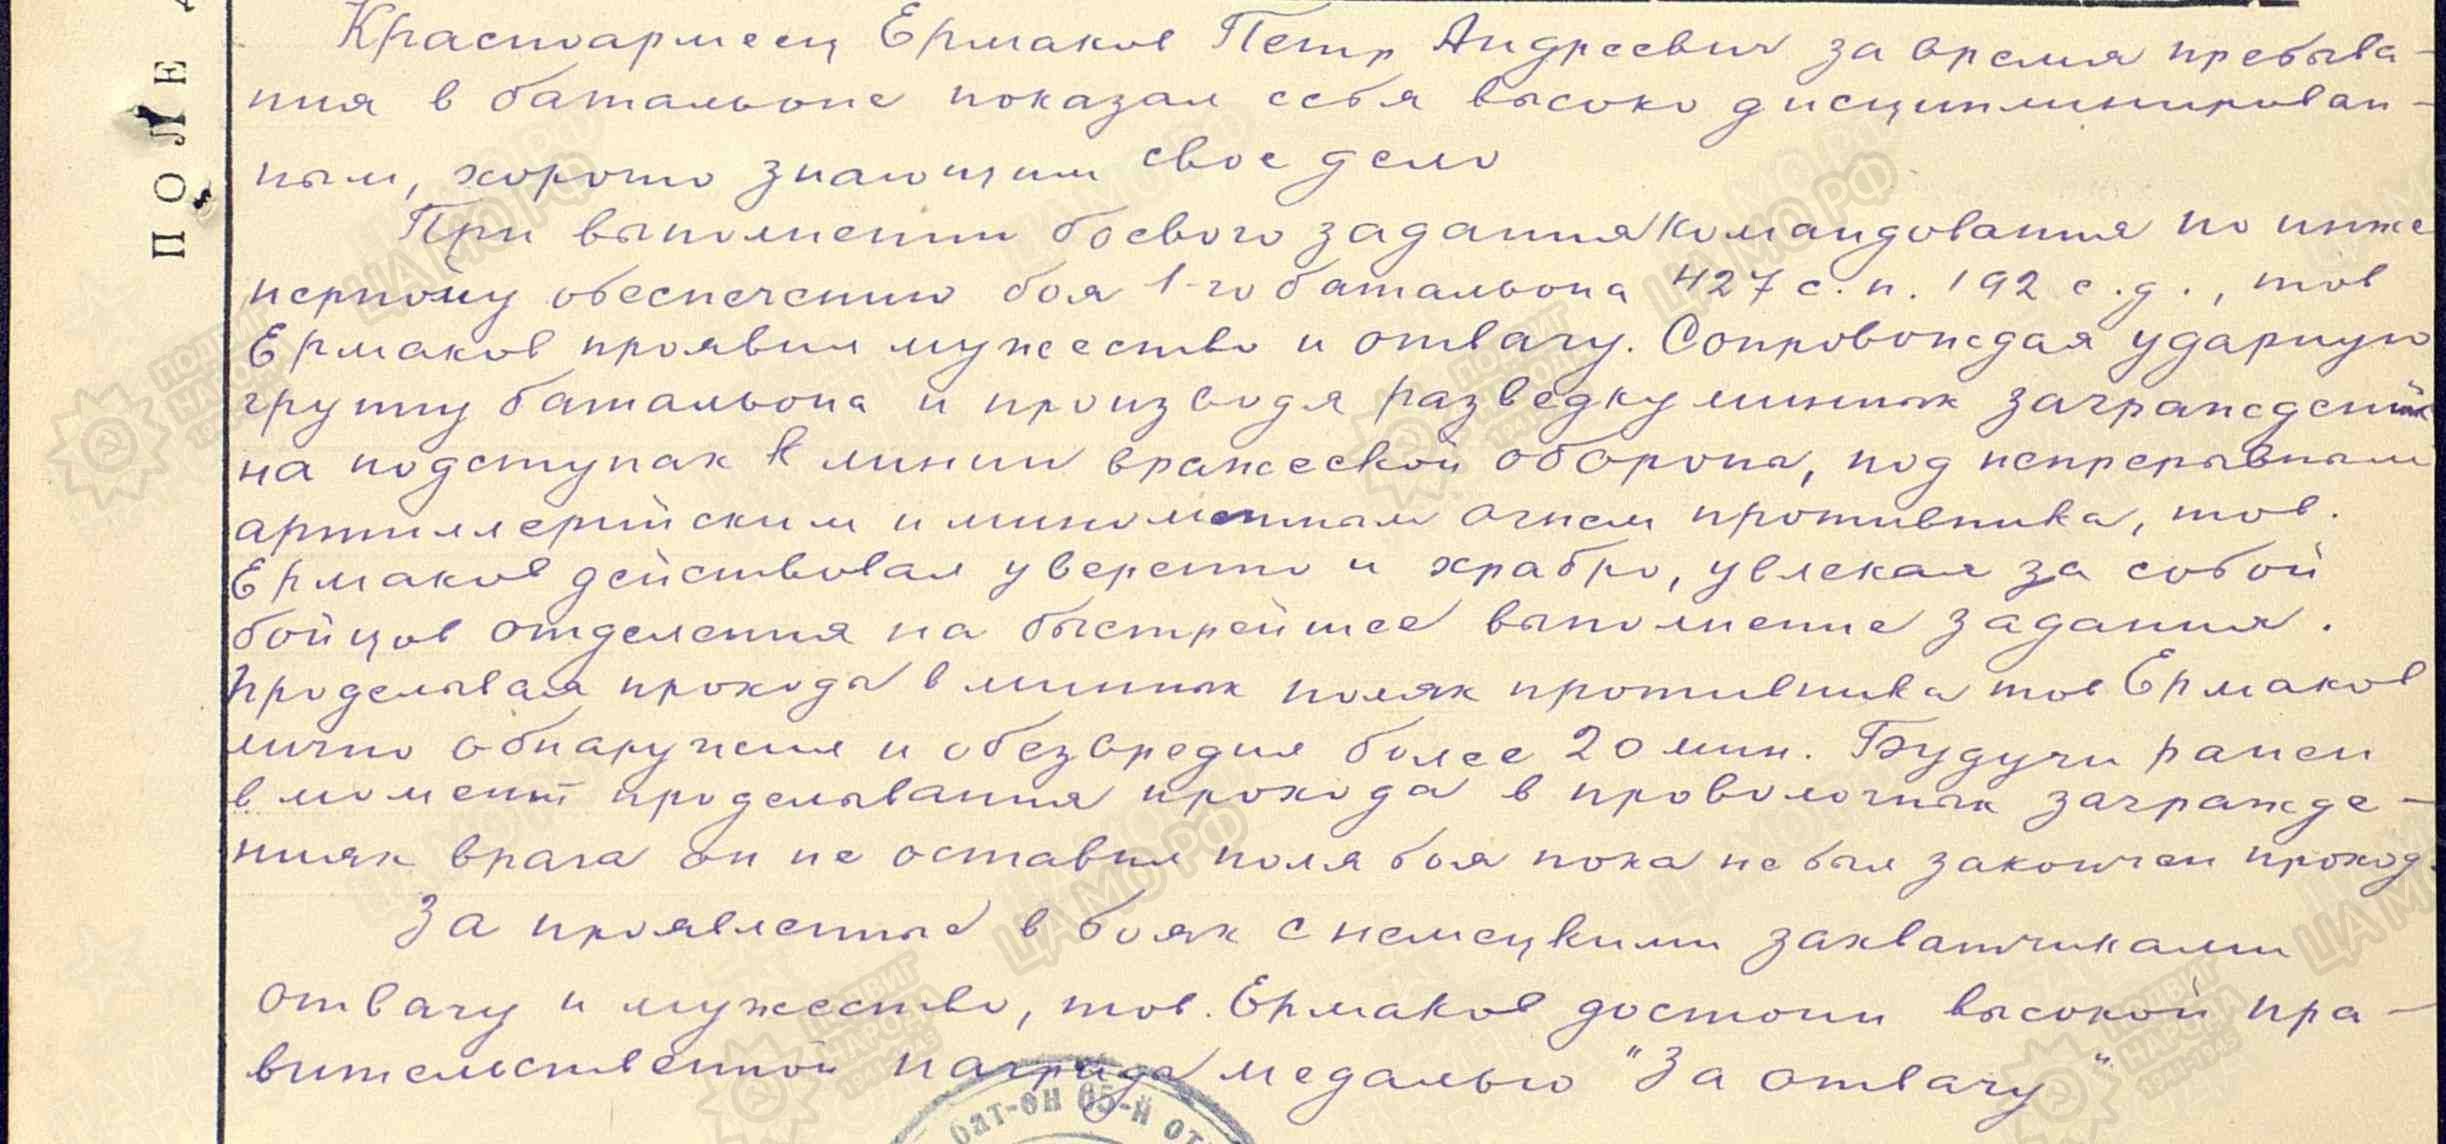 Красноармеец Ермаков Петр Андреевич за время пребыва-
ния в батальоне показал себя высоко дисциплинирован-
ным, хорошо знающим свое дело
При выполнении боевого задания командования по инже
нерному обеспечению боя 1-го батальона 427 с.п. 192 с.д., тов
Ермаков проявил мужество и отвагу. Сопровождая ударную
группу батальона и производя разведку минных заграждений
на подступах к линии вражеской обороны, под непрерывным
артиллерийским и минометным огнем противника, тов.
Ермаков действовал уверенно и храбро, увлекая за собой
бойцов отделения на быстрейшее выполнение задания.
Проделывая проходы в минных полях противника тов Ермаков
лично обнаружил и обезвредил более 20 мин. Будучи ранен
в момент проделывания прохода в проволочных загражде-
ниях врага он не оставил поля боя пока не был закончен проход.
За проявленные в боях с немецкими захватчиками
отвагу и мужество, тов. Ермаков достоин высокой пра-
вительственной награды медалью "За отвагу"
ПОЛЕ
бат-он 65-й от
ЦАМО РФ
ПОДВИГ
НАРОДА
1941-1945